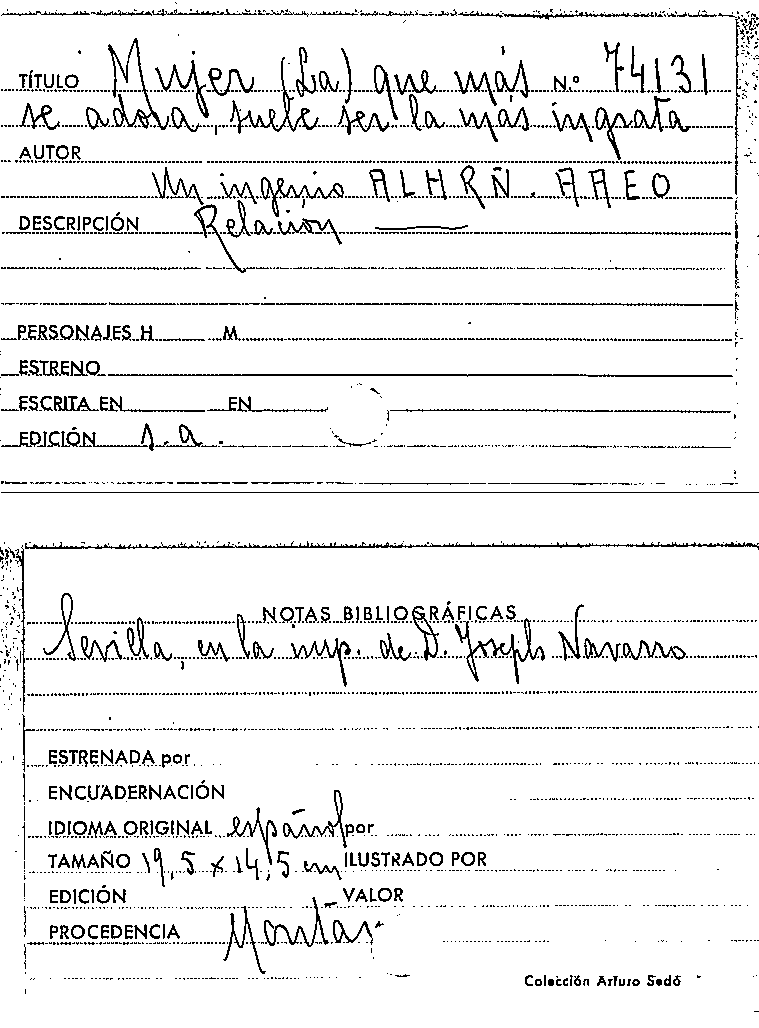 TÍTULO Mujer (La) que más N.º 74131
se adora, suele ser la más ingrata
AUTOR
Un ingenio ALHRÑ. AAEO
DESCRIPCIÓN Relación
PERSONAJES H M
ESTRENO
ESCRITA EN EN
EDICIÓN s.a.
NOTAS BIBLIOGRÁFICAS
Sevilla, en la imp. de D. Joseph Navarro
ESTRENADA por
ENCUADERNACIÓN
IDIOMA ORIGINAL español por
TAMAÑO 19,5 x 14,5 cm ILUSTRADO POR
EDICIÓN VALOR
PROCEDENCIA
Colección Arturo Sedó